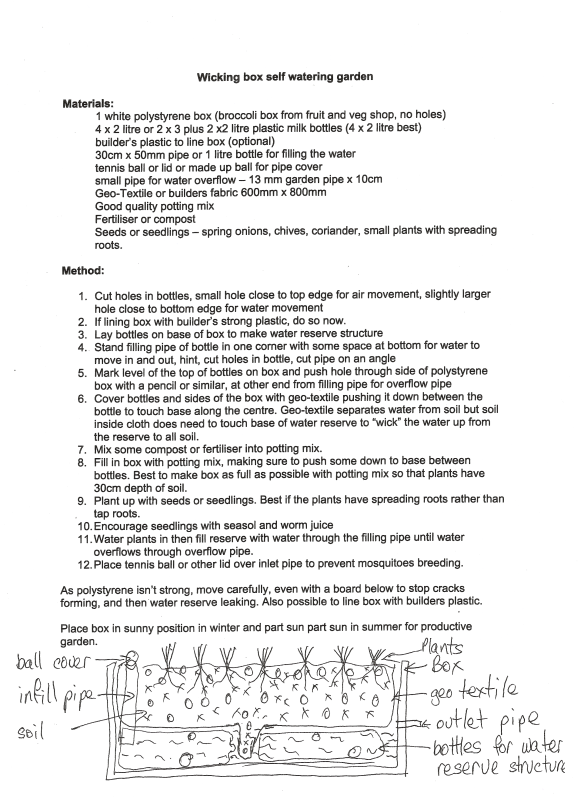 Wicking box self watering garden
Materials:
1 white polystyrene box (broccoli box from fruit and veg shop, no holes)
4 x 2 litre or 2 x 3 plus 2 x2 litre plastic milk bottles (4 x 2 litre best)
builder's plastic to line box (optional)
30cm x 50mm pipe or 1 litre bottle for filling the water
tennis ball or lid or made up ball for pipe cover
small pipe for water overflow – 13 mm garden pipe x 10cm
Geo-Textile or builders fabric 600mm x 800mm
Good quality potting mix
Fertiliser or compost
Seeds or seedlings – spring onions, chives, coriander, small plants with spreading
roots.
Method:
1. Cut holes in bottles, small hole close to top edge for air movement, slightly larger
hole close to bottom edge for water movement
2. If lining box with builder's strong plastic, do so now.
3. Lay bottles on base of box to make water reserve structure
4. Stand filling pipe of bottle in one corner with some space at bottom for water to
move in and out, hint, cut holes in bottle, cut pipe on an angle
5. Mark level of the top of bottles on box and push hole through side of polystyrene
box with a pencil or similar, at other end from filling pipe for overflow pipe
6. Cover bottles and sides of the box with geo-textile pushing it down between the
bottle to touch base along the centre. Geo-textile separates water from soil but soil
inside cloth does need to touch base of water reserve to "wick" the water up from
the reserve to all soil.
7. Mix some compost or fertiliser into potting mix.
8. Fill in box with potting mix, making sure to push some down to base between
bottles. Best to make box as full as possible with potting mix so that plants have
30cm depth of soil.
9. Plant up with seeds or seedlings. Best if the plants have spreading roots rather than
tap roots.
10. Encourage seedlings with seasol and worm juice
11. Water plants in then fill reserve with water through the filling pipe until water
overflows through overflow pipe.
12. Place tennis ball or other lid over inlet pipe to prevent mosquitoes breeding.
As polystyrene isn't strong, move carefully, even with a board below to stop cracks
forming, and then water reserve leaking. Also possible to line box with builders plastic.
Place box in sunny position in winter and part sun part sun in summer for productive
garden.
ball cover
infill pipe
soil
Plants
Box
geo textile
outlet pipe
bottles for water
reserve structure